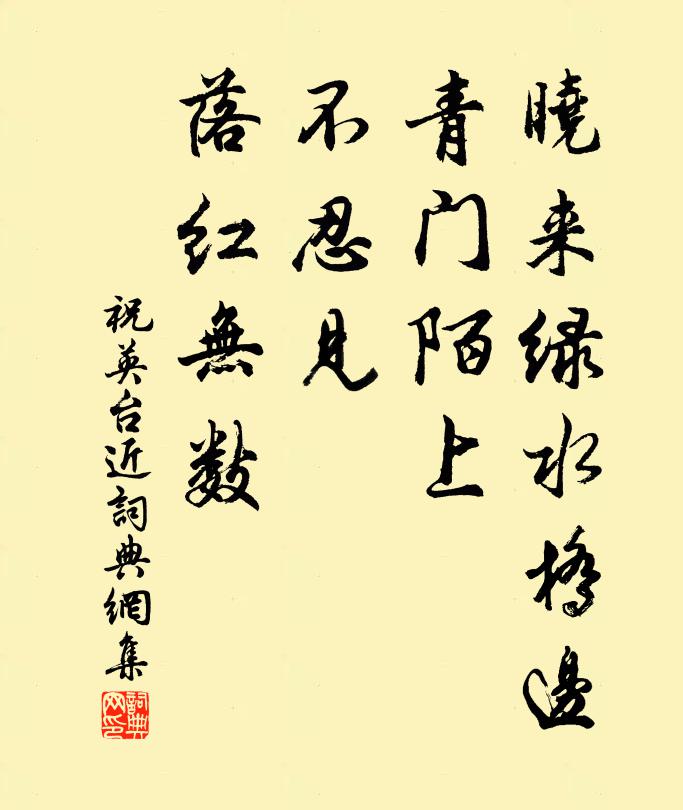 曉来绿水橋邊
青门陌上
不忍見
落红無数
祝英台近詞典網集
詞典网印